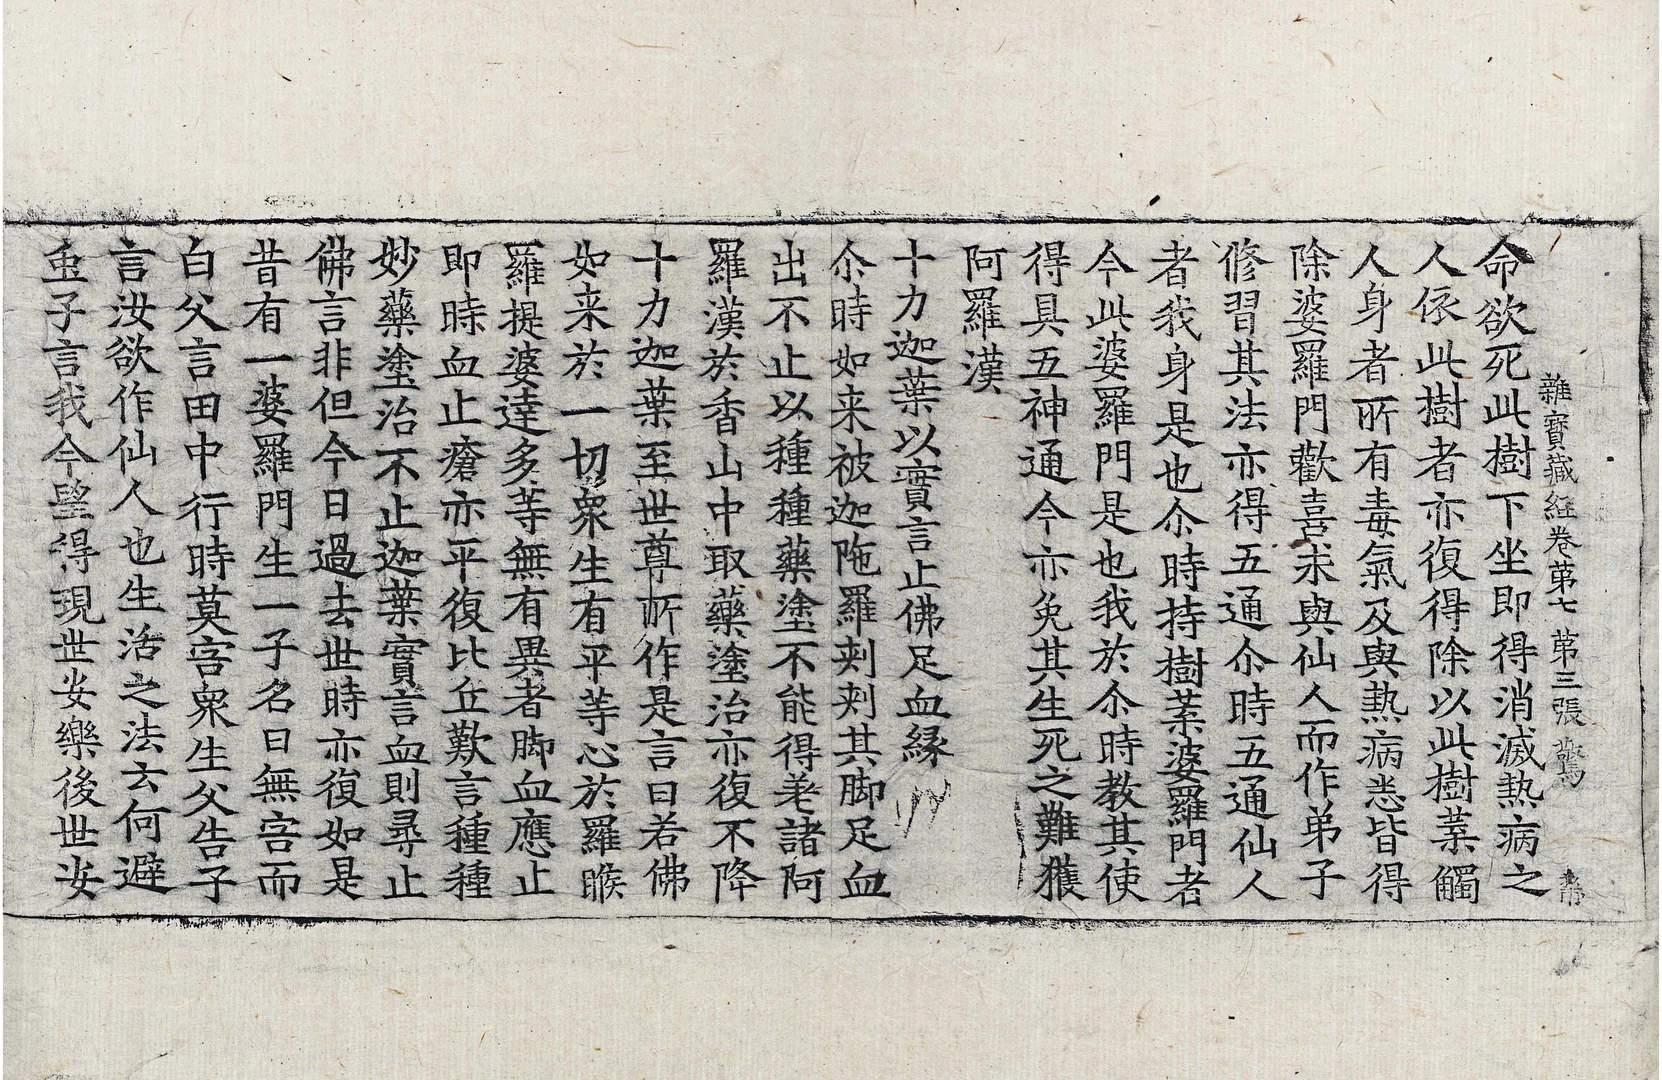 雜寶藏經卷第七 第三張 驚
命欲死此樹下坐即得消滅熱病之
人依此樹者亦復得除以此樹葉觸
人身者所有毒氣及與熱病悉皆得
除婆羅門歡喜求與仙人而作弟子
修習其法亦得五通尒時五通仙人
者我身是也尒時持樹葉婆羅門者
今此婆羅門是也我於尒時教其使
得具五神通今亦免其生死之難獲
阿羅漢
十力迦葉以實言止佛足血緣
尒時如来被迦陁羅刾刾其脚足血
出不止以種種藥塗不能得差諸阿
羅漢於香山中取藥塗治亦復不降
十力迦葉至世尊所作是言曰若佛
如来於一切衆生有平等心於羅睺
羅提婆達多等無有異者脚血應止
即時血止瘡亦平復比丘歎言種種
妙藥塗治不止迦葉實言血則尋止
佛言非但今日過去世時亦復如是
昔有一婆羅門生一子名曰無害而
白父言田中行時莫害衆生父告子
言汝欲作仙人也生活之法云何避
虫子言我今望得現世安樂後世安